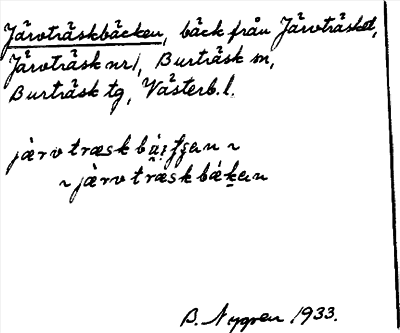 Järvträskbäcken, bäck från Järvträsket,
Järvträsk nr 1, Burträsk sn,
Burträsk tg, Västerb. l.
järv træsk
~ järv træskbäkan
B. Nygren 1933.